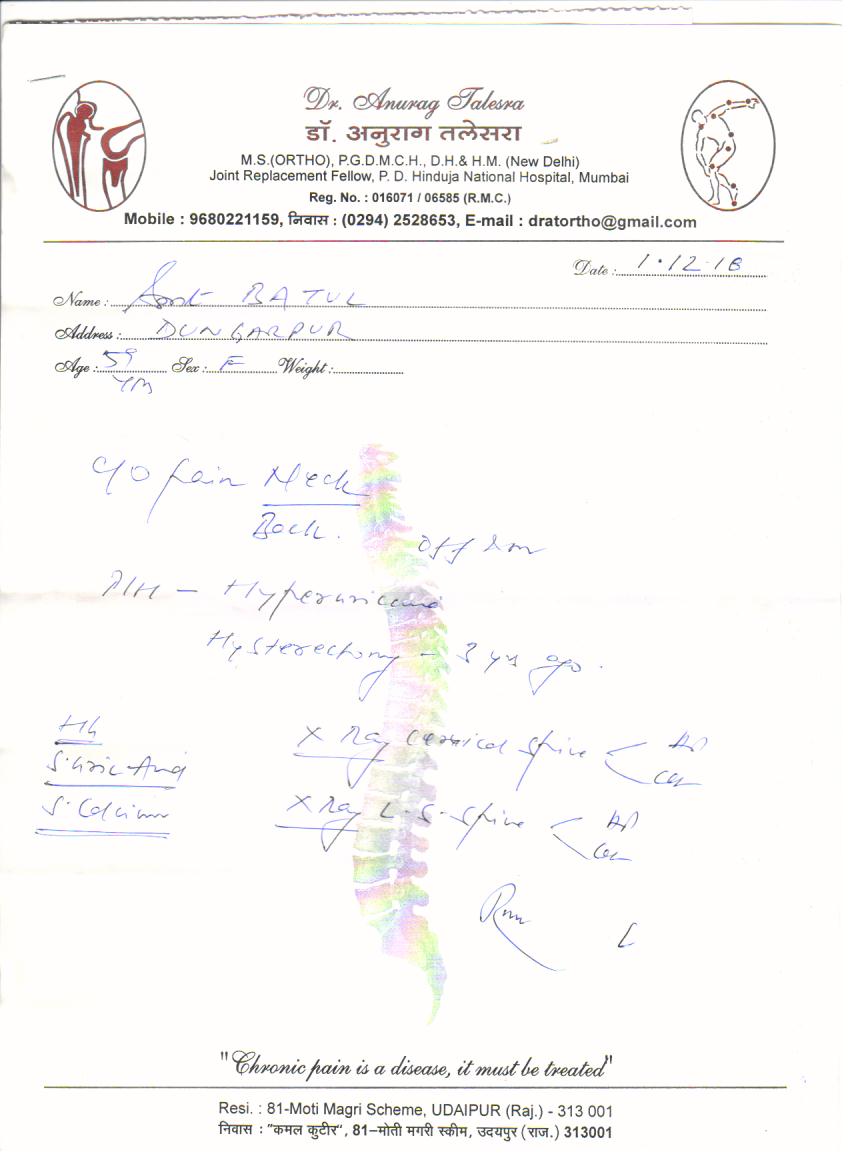 Dr. Anurag Talesra
डॉ. अनुराग तलेसरा
M.S.(ORTHO), P.G.D.M.C.H., D.H.& H.M. (New Delhi)
Joint Replacement Fellow, P. D. Hinduja National Hospital, Mumbai
Reg. No. : 016071 / 06585 (R.M.C.)
Mobile : 9680221159, निवास : (0294) 2528653, E-mail : dratortho@gmail.com
Date : 1.12.18
Name : Smt BATUL
Address : DUNGARPUR
Age : 59 Sex : F Weight :
Yrs
C/O Pain Neck
Back.
off & on
P/H - Hyperuricemia
Hysterectomy - 3 yrs ago.
Hb
S. Uric Acid
S. Calcium
X Ray Cervical Spine < AP
Lat
X Ray L-S-Spine < AP
Lat
"Chronic pain is a disease, it must be treated"
Resi. : 81-Moti Magri Scheme, UDAIPUR (Raj.) - 313 001
निवास : "कमल कुटीर", 81-मोती मगरी स्कीम, उदयपुर (राज.) 313001